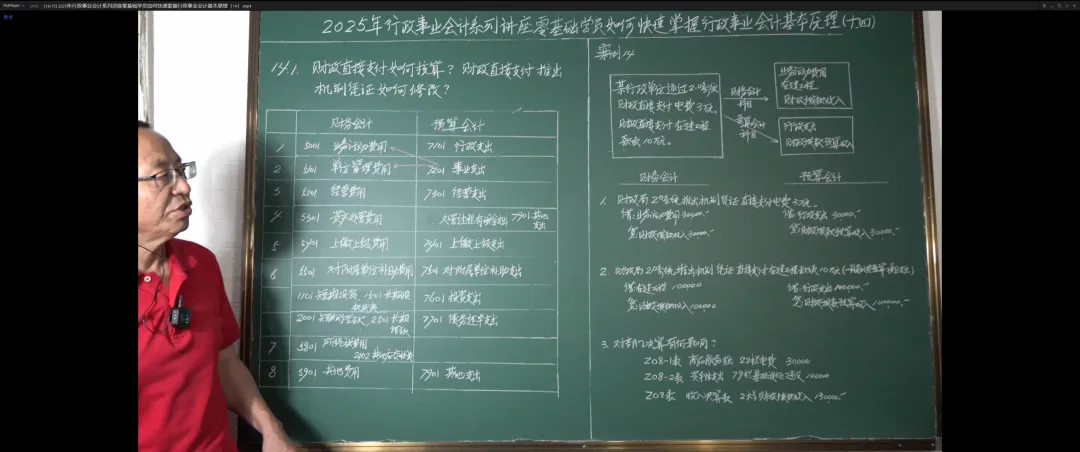 2025年行政事业会计系列讲座零基础学员如何快速掌握行政事业会计基本原理(十四)
14.1. 财政直接支付如何核算？财政直接支付推出
机制凭证如何修改？
财务会计 预算会计
1 5001 业务活动费用 7101 行政支出
2 5101 单位管理费用 7201 事业支出
3 5201 经营费用 7301 经营支出
4 5301 资产处置费用 7901 其他支出
5 5401 上缴上级费用 7401 上缴上级支出
6 5501 对附属单位补助费用 7501 对附属单位补助支出
1101 短期投资 1501 长期股权投资 7601 投资支出
2001 短期借款 2501 长期借款 7701 债务还本支出
7 5801 所得税费用
2102 其他应交税费
8 5901 其他费用 7901 其他支出
案例14
某行政单位通过2.0系统
财政直接支付电费3万。
财政直接支付在建工程
款10万。
财务会计
科目
预算会计
科目
业务活动费用
在建工程
财政拨款收入
行政支出
财政拨款预算收入
财务会计 预算会计
1. 财政局2.0系统推出机制凭证直接支付电费3万。
借:业务活动费用 30000.- 借:行政支出 30000.-
贷:财政拨款收入 30000.- 贷:财政拨款预算收入 30000.-
2. 财政局2.0系统推出机制凭证直接支付在建工程款10万
借:在建工程 100000 借:行政支出 100000.-
贷:财政拨款收入 100000 贷:财政拨款预算收入 100000.-
3. 对部门决算有何影响？
Z08-1表 商品服务支出 电费 30000
Z08-2表 基础设施建设 100000
Z03表 收入决算表 财政拨款收入 130000.-